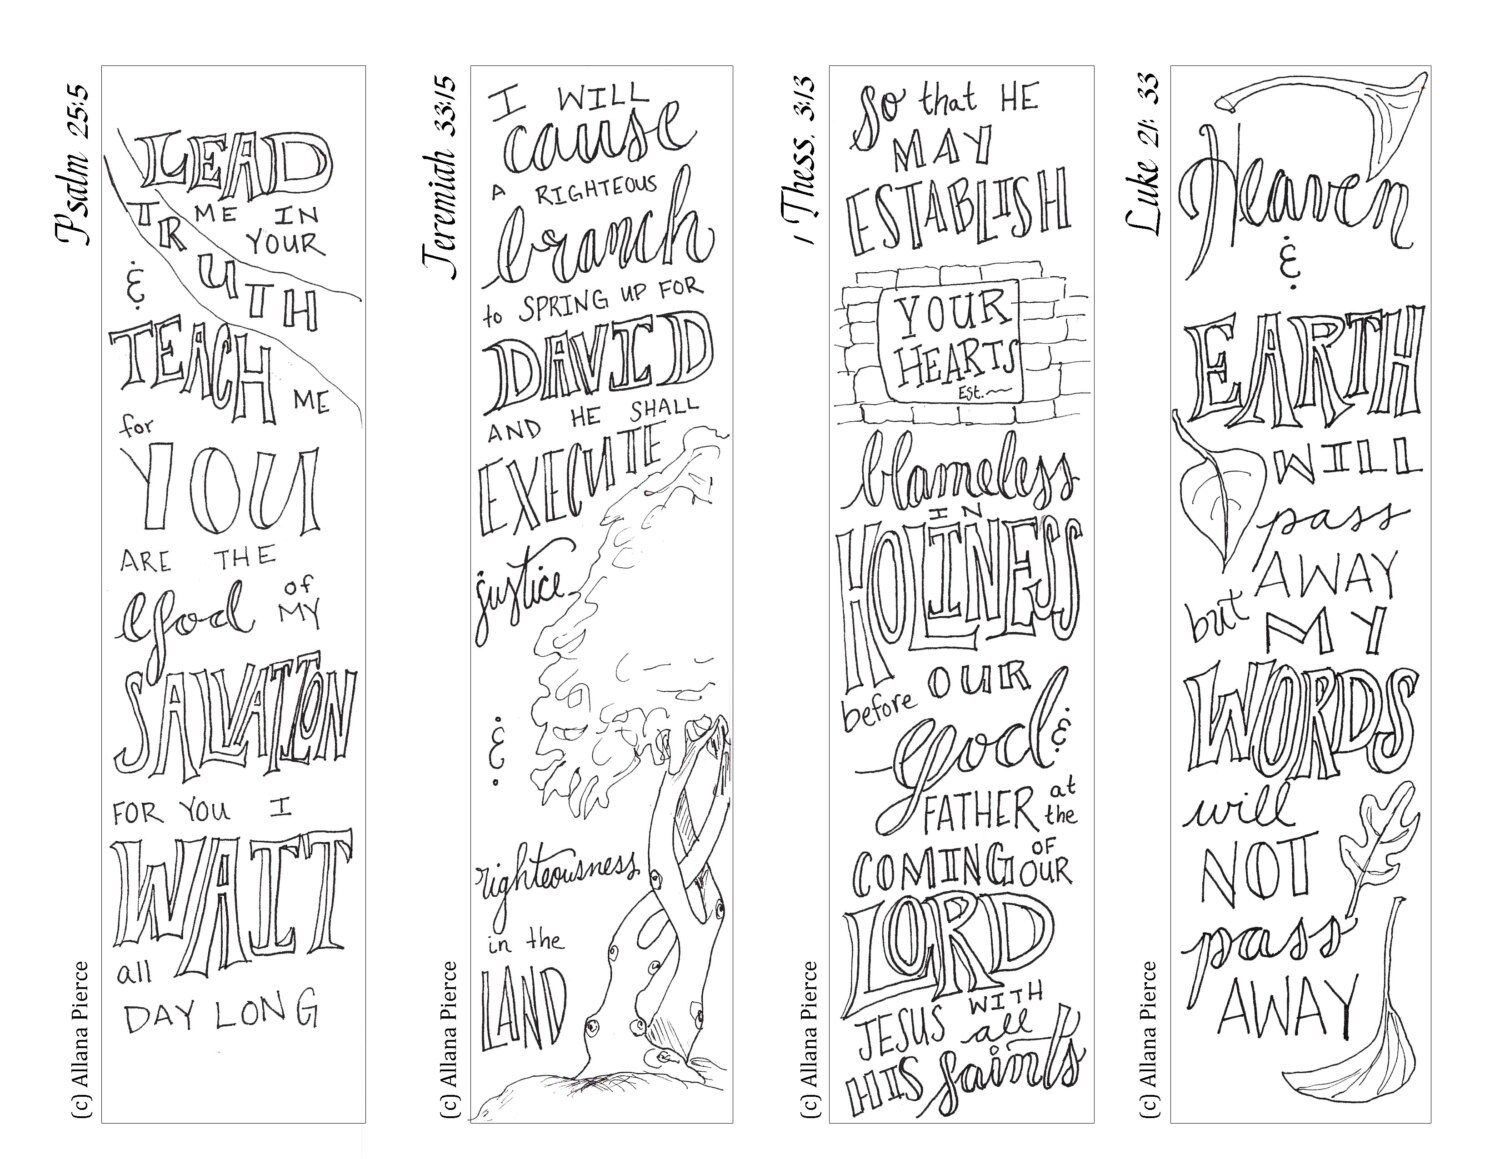 Psalm 25:5
LEAD
ME IN
YOUR
TRUTH
&
TEACH
ME
for
YOU
ARE THE
God of
MY
SALVATION
FOR YOU I
WAIT
all
DAY LONG
(c) Allana Pierce
Jeremiah 33:15
I WILL
cause
A RIGHTEOUS
branch
to SPRING UP FOR
DAVID
AND HE SHALL
EXECUTE
justice
&
righteousness
in the
LAND
(c) Allana Pierce
1 Thess. 3:13
so that HE
MAY
ESTABLISH
YOUR
HEARTS
Est.
blameless
IN
HOLINESS
before OUR
God &
FATHER at
the
COMING OF
OUR
LORD
JESUS WITH
all
HIS saints
(c) Allana Pierce
Luke 21: 33
Heaven
&
EARTH
WILL
pass
AWAY
but MY
WORDS
will
NOT
pass
AWAY
(c) Allana Pierce